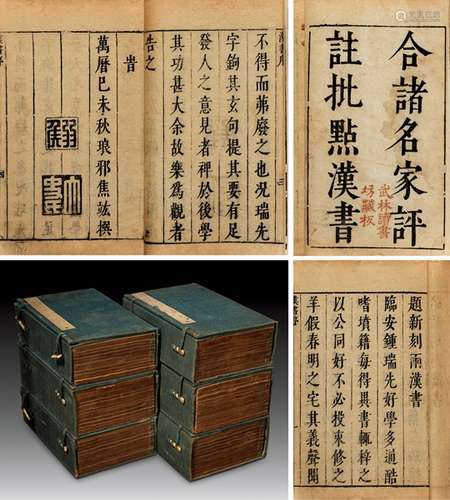 不得而茀廢之也况瑞先
字鉤其玄句提其要有足
發人之意見者裨於後學
其功甚大余故樂爲觀者
告之
旹
萬曆己未秋琅邪焦竑撰
合諸名家評
註批點漢書
武林讀書
坊藏板
題新刻兩漢書
臨安鍾瑞先好學多通酷
嗜墳籍每得異書輒梓之
以公同好不必授束修之
羊假春明之宅其義聲聞